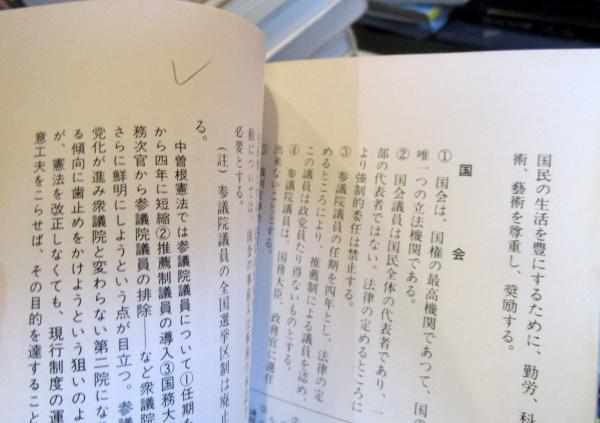 国民の生活を豊にするために、勤労、科
術、藝術を尊重し、奨励する。
国　会
① 国会は、国権の最高機関であつて、国の
唯一つの立法機関である。
② 国会議員は国民全体の代表者であり、一
部の代表者ではない。法律の定めるところに
より強制的委任は禁止する。
③ 参議院議員の任期を四年とし、法律の定
めるところにより、推薦制による議員を認め、
この議員は政党員たり得ないものとする。
④ 参議院議員は、国務大臣、政務官に選任
出来ないこととする。
必要とする。
(註) 参議院議員の全国選挙区制は廃止
る。
中曽根憲法では参議院議員について①任期を
から四年に短縮②推薦制議員の導入③国務大
務次官から参議院議員の排除――など衆議院
さらに鮮明にしようという点が目立つ。参議
党化が進み衆議院と変わらない第二院にな
る傾向に歯止めをかけようという狙いのよ
が、憲法を改正しなくても、現行制度の運
意工夫をこらせば、その目的を達すること